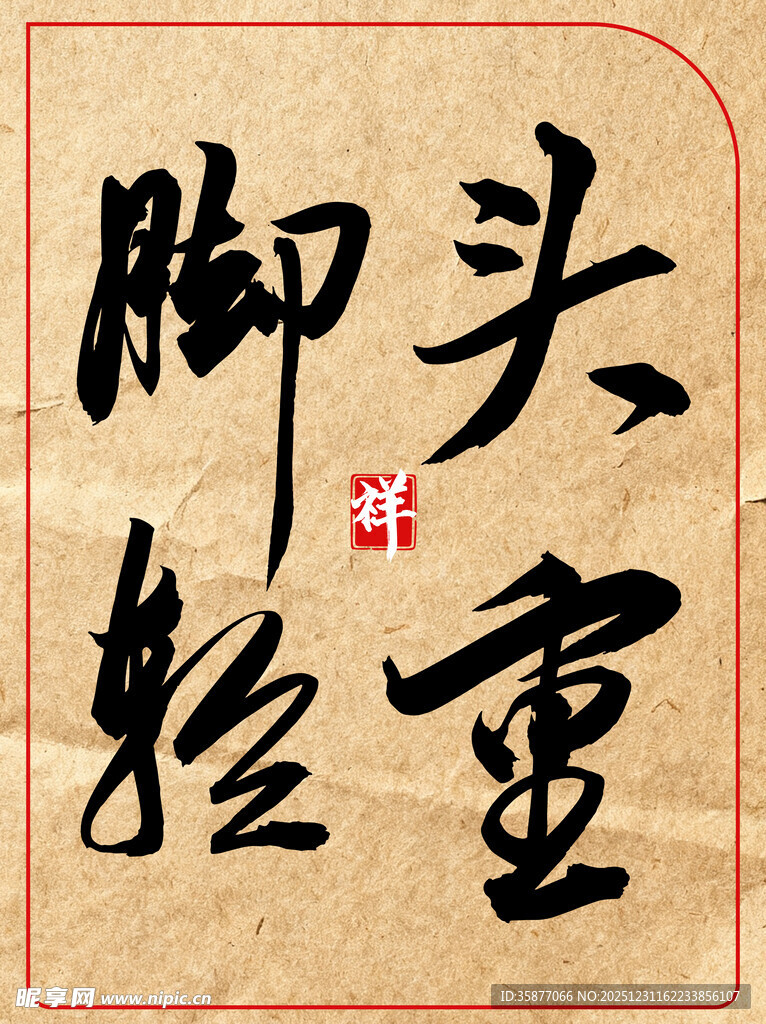 头重
脚轻
祥
昵享网 www.nipic.cn
ID:35877066 NO:20251231162233856107